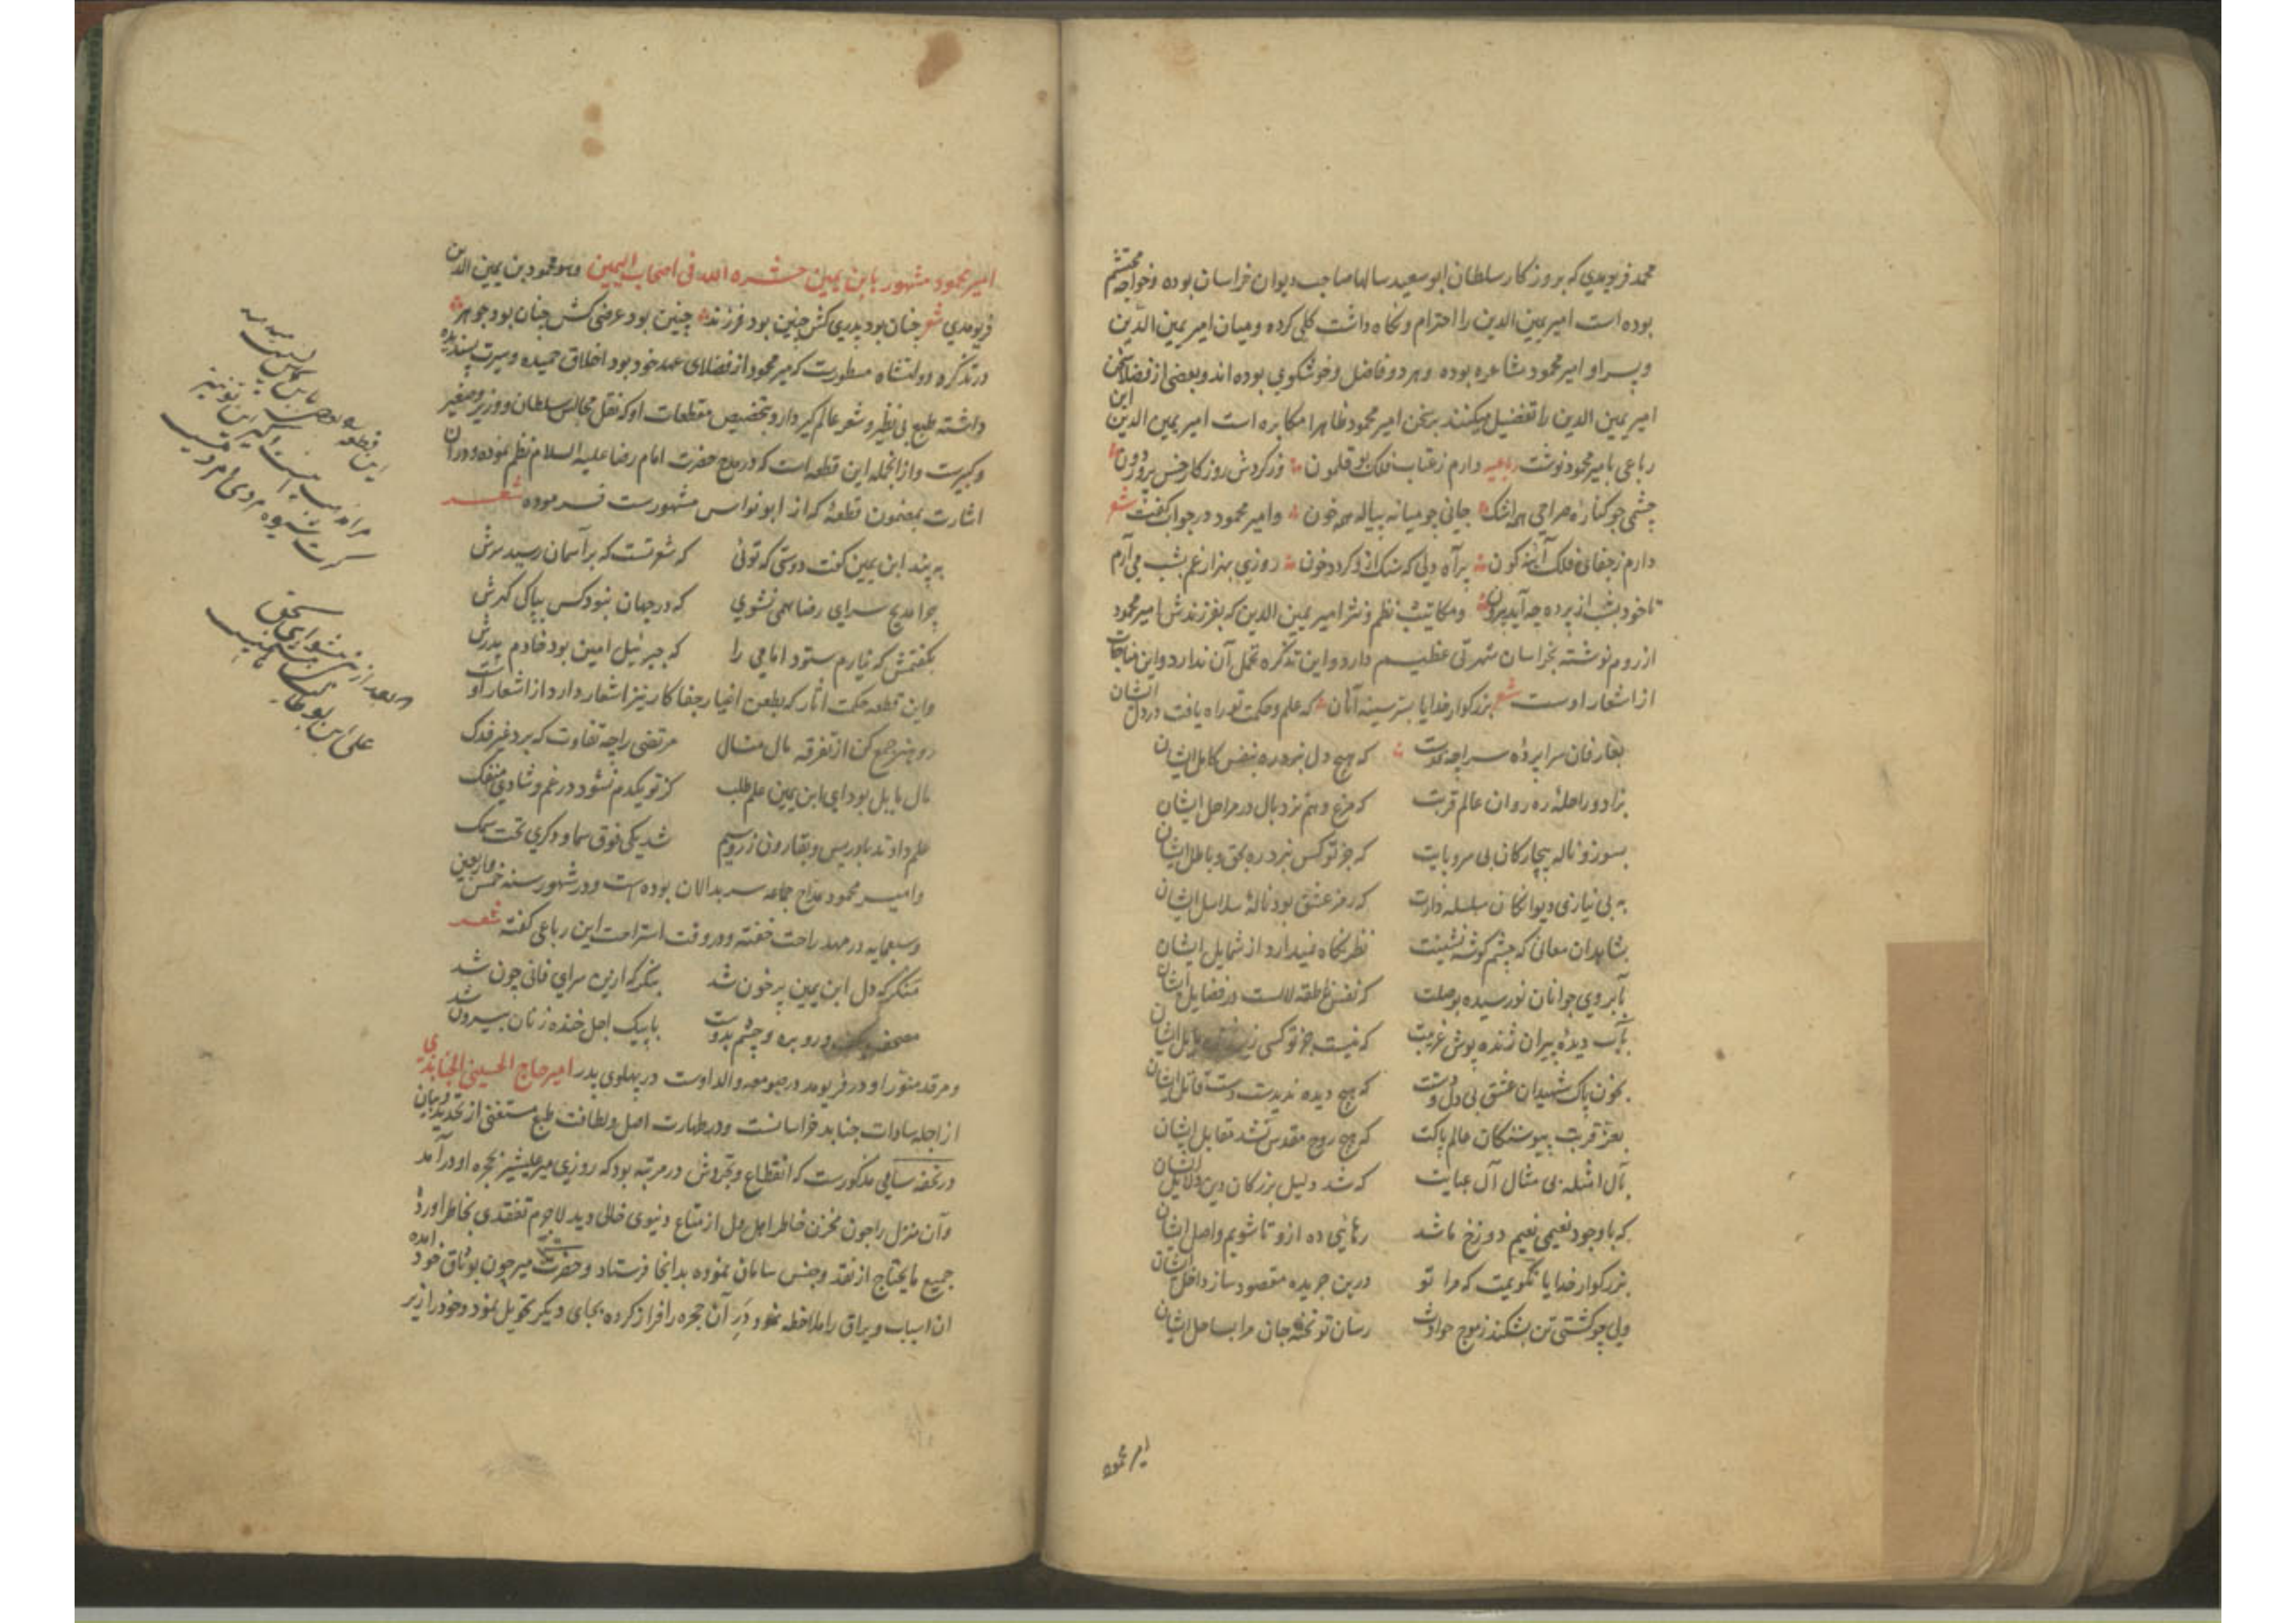 محمد فریومدی که بروزکار سلطان ابوسعید سالها صاحب دیوان خراسان بوده وخواجه محتشم
بوده است امیر یمین الدین را احترام ونکاه داشت کلی کرده ومیان امیر یمین الدین
وپسر او امیر محمود مشاعره بوده وهر دو فاضل وخوشکوی بوده اند وبعضی از فضلا سخن
امیر یمین الدین را تفضیل میکنند بر سخن امیر محمود ظاهرا این مکابره است امیر یمین الدین
رباعی بامیر محمود نوشت رباعیه دارم ز عتاب فلک بوقلمون وز کردش روزکار خس پرور دون
چشمی جو کناره صراحی همه اشک جانی جو میانه پیاله همه خون وامیر محمود در جواب کفت شعر
دارم ز جفای فلک آینه کون پر آه دلی که سنک ازو کردد خون روزی بهزار غم بشب می آرم
تا خود بشب از پرده چه آید بیرون ومکاتیب نظم ونثر امیر یمین الدین که بفرزندش امیر محمود
از روم نوشته بخراسان شهرتی عظیم دارد واین تذکره تحمل آن ندارد واین مناجات
از اشعار اوست شعر بزرکوار خدایا بسر سینه آنان که علم وحکمت تو راه یافت در دل ایشان
بعارفان سراپرده سراچه که هیچ دل نبرد ره بنفس کامل ایشان
بزاد وراحله ره روان عالم قربت که مرغ وهم نزد بال در مراحل ایشان
بسوز وناله بیچارکان بی سر وپایت که جز تو کس نبرد ره بحق وباطل ایشان
به بی نیازی دیوانکان سلسله دارت که رمز عشق بود ناله سلاسل ایشان
بشاهدان معانی که چشم کوشه نشینت نظر نکاه نمیدارد از شمایل ایشان
بآبروی جوانان نو رسیده بوصلت که نفس ناطقه لالست در فضایل ایشان
بآب دیده پیران ژنده پوش غریبت که نیست جز تو کسی
بخون پاک شهیدان عشق بی دل ودستت که هیچ دیده ندیدست دست قاتل ایشان
بعز قربت پیوستکان عالم پاکت که هیچ روح مقدس نشد مقابل ایشان
بآل امثله بی مثال آل عبایت که شد دلیل بزرکان دین دلایل ایشان
که با وجود نعیمی نعیم دوزخ باشد رهانیی ده ازو تا شویم واصل ایشان
بزرکوار خدایا نکویمت که مرا تو درین جریده مقصود ساز داخل ایشان
ولی چو کشتی تن بشکند ز موج حوادث رسان تو تخته جان مرا بساحل ایشان
امیر محمود
امیر محمود مشهور بابن یمین حشره الله فی اصحاب الیمین وهو محمود بن یمین الدین
فریومدی شعر جنان بود پدری کش جنین بود فرزند جنین بود عرضی کش جنان بود جوهر
در تذکره دولتشاه مسطورست که میر محمود از فضلای عهد خود بود اخلاق حمیده وسیرت پسندیده
داشته طبع بی نظیر وشعر عالم کیر دارد بتخصیص مقطعات او که نقل مجالس سلطان ووزیر وصغیر
وکبیرست واز انجمله این قطعه است که در مدح حضرت امام رضا علیه السلام نظم نموده ودر ان
اشارت بمضمون قطعه که از ابو نواس مشهورست فرموده شعر
به پند ابن یمین کفت دوستی که تویی که شعر تست که بر آسمان رسید سرش
چرا مدیح سرای رضا همی نشوی که در جهان نبود کس بپاکی کهرش
بکفتمش که نیارم ستود امامی را که جبرئیل امین بود خادم پدرش
واین قطعه حکمت اثار که بطعن اغیار جفاکار نیز اشعار دارد از اشعار اوست
رو هنر جمع کن از تفرقه مال منال مرتضی را چه تفاوت که برد غیر فدک
مال بابل بود ای ابن یمین علم طلب کز تو یکدم نشود در غم وشادی منفک
علم دادند بادریس وبقارون زر وسیم شد یکی فوق سما ودکری تحت سمک
وامیر محمود مداح جماعه سربدالان بوده است ودر شهور سنه خمس واربعین
وسبعمایه در مهد راحت خفته ودر وقت استراحت این رباعی کفته شعر
منکر که دل ابن یمین پر خون شد بنکر که ازین سرای فانی چون شد
مصحف بکف ورو بره وچشم بدوست با پیک اجل خنده زنان بیرون شد
ومرقد منور او در فریومد در صومعه والد اوست در پهلوی پدر امیر حاج الحسینی الجنابذی
از اجله سادات جنابد خراسانست ودر طهارت اصل ولطافت طبع مستغنی از تحدید وبیان
در تحفه سامی مذکورست که انقطاع وتجردش در مرتبه بود که روزی میر علیشیر بحجره او در آمد
وآن منزل را چون مخزن خاطر اهل دل از متاع دنیوی خالی دید لاجرم تفقدی بخاطر آورده
جمیع مایحتاج از نقد وجنس سامان نموده بدانجا فرستاد وحضرت میر چون بوثاق خود آمده
ان اسباب ویراق را ملاحظه نمود در آن حجره را فراز کرده بجای دیکر تحویل نمود وخود را از سر